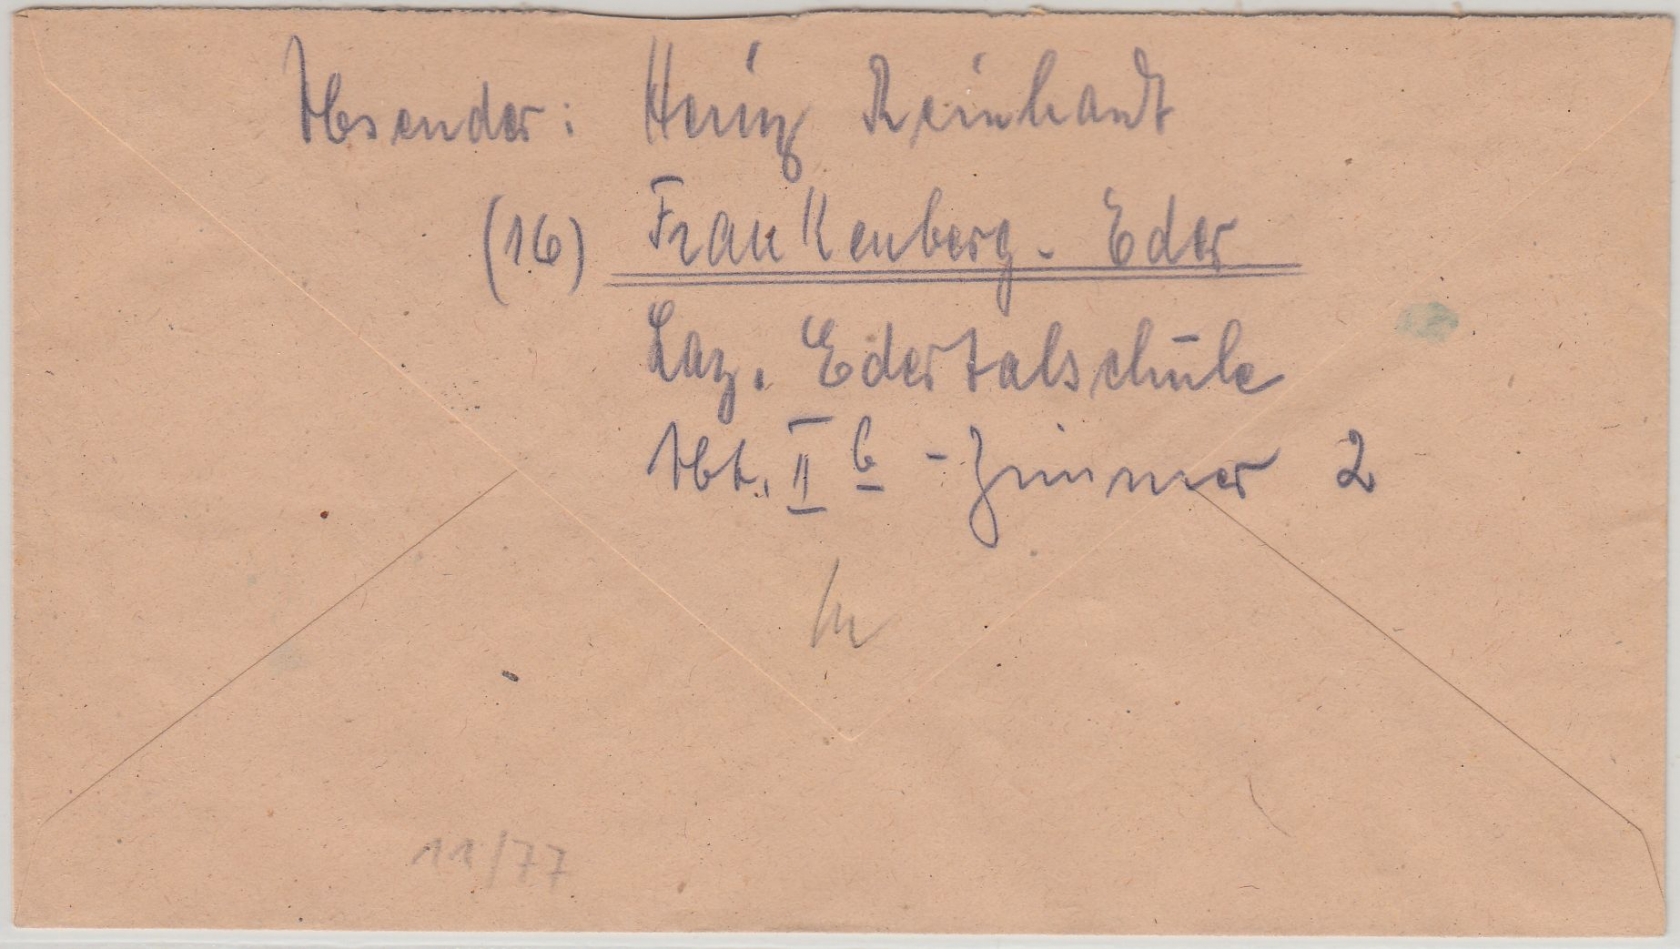 Absender: Heinz Reinhardt
(16) Frankenberg - Eder
Laz. Edertalschule
Abt. II b - Zimmer 2
11/77